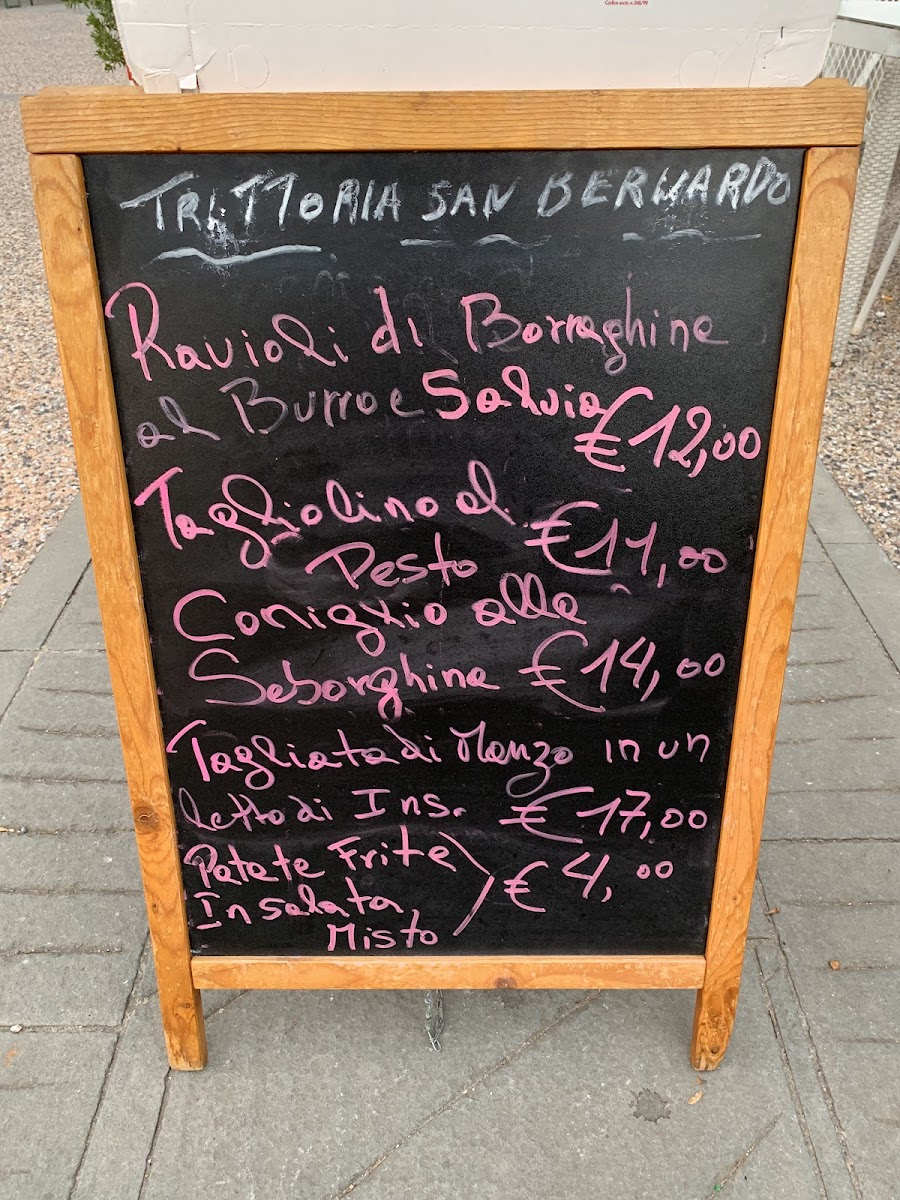 TRATTORIA SAN BERNARDO
Ravioli di Borraghine
al Burro e Salvia €12,00
Tagliolino al
Pesto €11,00
Coniglio alla
Seborghina €14,00
Tagliata di Manzo in un
letto di Ins. €17,00
Patate Frite
Insalata, €4,00
Misto